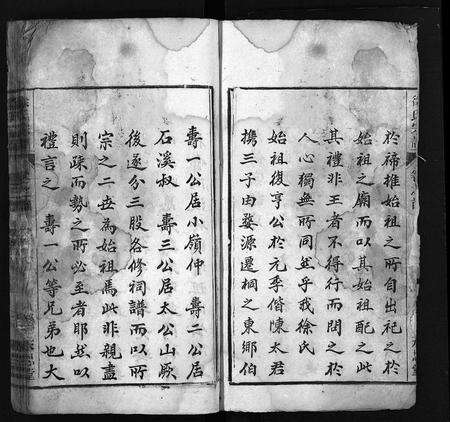 於禘推始祖之所自出祀之於
始祖之廟而以其始祖配之此
其禮非王者不得行而閟之於
人心獨無所同然乎我徐氏
始祖復亨公於元季偕陳太君
携三子由婺源遷桐之東鄉伯
壽一公居小嶺仲　壽二公居
石溪叔　壽三公居太公山厥
後遂分三股各修祠譜而以所
宗之二世為始祖焉此非親盡
則疎而勢之所必至者耶然以
禮言之　壽一公等兄弟也大